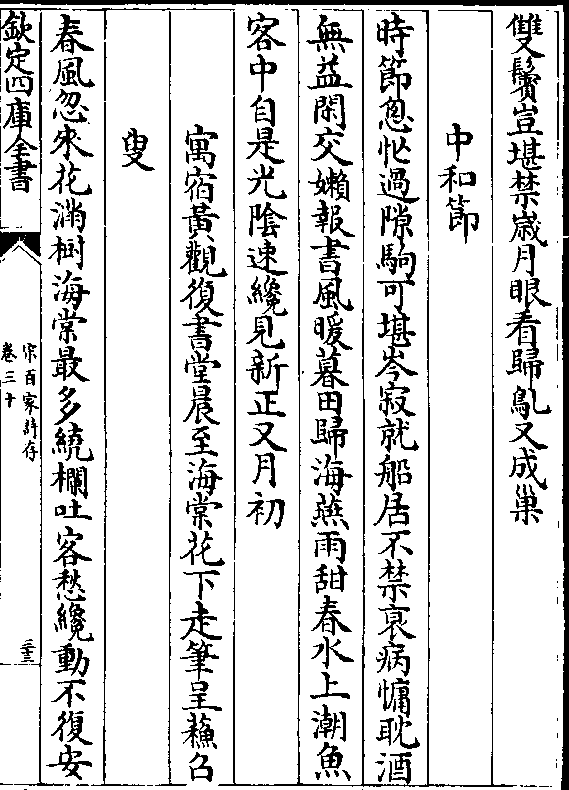 雙鬢豈堪禁歲月眼看歸鳦又成巢
中和節
時節怱忙過隙駒可堪岑寂就船居不禁衰病慵耽酒
無益閑交嬾報書風暖暮田歸海燕雨甜春水上潮魚
客中自是光陰速纔見新正又月初
寓宿黃觀復書堂晨至海棠花下走筆呈蘓召
叟
春風忽來花滿樹海棠最多繞欄吐客愁纔動不復安
欽定四庫全書
宋百家詩存
卷三十